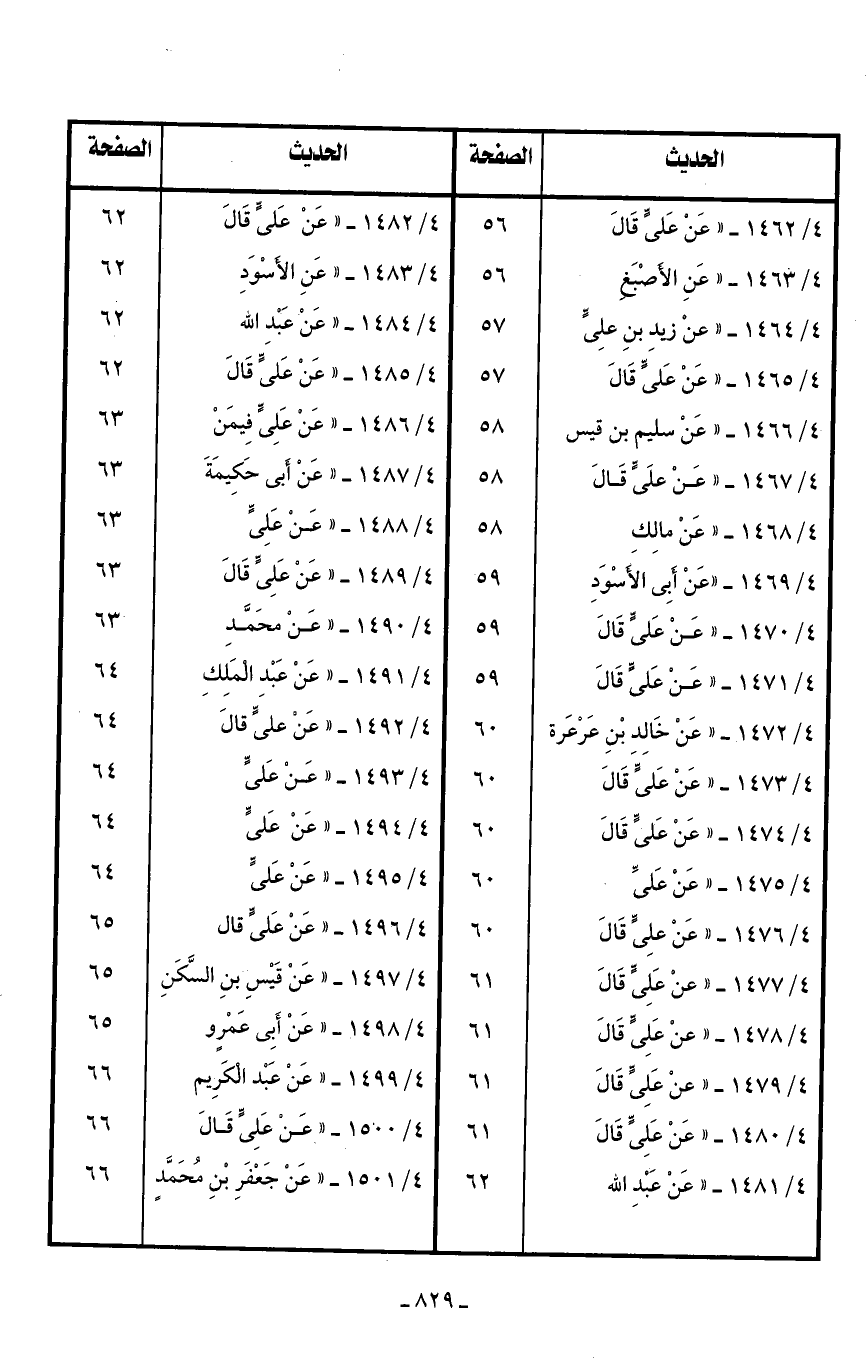 الحديث الصفحة الحديث الصفحة
٤/ ١٤٦٢ ـ « عَنْ عَلىٍّ قَالَ ٥٦ ٤/ ١٤٨٢ ـ « عَنْ عَلىٍّ قَالَ ٦٢
٤/ ١٤٦٣ ـ « عَنِ الأَصْبَغِ ٥٦ ٤/ ١٤٨٣ ـ « عَنِ الأَسْوَدِ ٦٢
٤/ ١٤٦٤ ـ « عنْ زيدِ بنِ علىٍّ ٥٧ ٤/ ١٤٨٤ ـ « عَنْ عَبْدِ الله ٦٢
٤/ ١٤٦٥ ـ « عَنْ عَلِىٍّ قَالَ ٥٧ ٤/ ١٤٨٥ ـ « عَنْ عَلِىٍّ قَالَ ٦٢
٤/ ١٤٦٦ ـ « عَنْ سليم بن قيس ٥٨ ٤/ ١٤٨٦ ـ « عَنْ عَلِىٍّ فِيمَنْ ٦٣
٤/ ١٤٦٧ ـ « عَـنْ علَىٍّ قَـالَ ٥٨ ٤/ ١٤٨٧ ـ « عَنْ أَبى حَكِيمَةَ ٦٣
٤/ ١٤٦٨ ـ « عَنْ مالِكِ ٥٨ ٤/ ١٤٨٨ ـ « عَـنْ عَلِىٍّ ٦٣
٤/ ١٤٦٩ ـ «عَنْ أَبِى الأَسْوَدِ ٥٩ ٤/ ١٤٨٩ ـ « عَنْ عَلِىٍّ قَالَ ٦٣
٤/ ١٤٧٠ ـ « عَـنْ عَلىٍّ قَالَ ٥٩ ٤/ ١٤٩٠ ـ « عَـنْ محَمَّـدِ ٦٣
٤/ ١٤٧١ ـ « عَـنْ عَلِىٍّ قَالَ ٥٩ ٤/ ١٤٩١ ـ « عَنْ عَبْدِ الْمَلِكِ ٦٤
٤/ ١٤٧٢ ـ « عَنْ خَالِدِ بْنِ عَرْعَرة ٦٠ ٤/ ١٤٩٢ ـ « عَنْ علىٍّ قالَ ٦٤
٤/ ١٤٧٣ ـ « عَنْ عَلِىٍّ قَالَ ٦٠ ٤/ ١٤٩٣ ـ « عَـنْ عَلىٍّ ٦٤
٤/ ١٤٧٤ ـ « عَنْ عَلِىٍّ قَالَ ٦٠ ٤/ ١٤٩٤ ـ « عَنْ عَلِىٍّ ٦٤
٤/ ١٤٧٥ ـ « عَنْ عَلىٍّ ٦٠ ٤/ ١٤٩٥ ـ « عَنْ عَلىٍّ ٦٤
٤/ ١٤٧٦ ـ « عَنْ علِىٍّ قَالَ ٦٠ ٤/ ١٤٩٦ ـ « عَنْ عَلىٍّ قال ٦٥
٤/ ١٤٧٧ ـ « عنْ عَلِىٍّ قَالَ ٦١ ٤/ ١٤٩٧ ـ « عَنْ قَيْسِ بنِ السَّكَنِ ٦٥
٤/ ١٤٧٨ ـ « عنْ عَلِىٍّ قَالَ ٦١ ٤/ ١٤٩٨ ـ « عَنْ أَبِى عَمْرٍو ٦٥
٤/ ١٤٧٩ ـ « عنْ عَلِىٍّ قَالَ ٦١ ٤/ ١٤٩٩ ـ « عَنْ عَبْد الْكَرِيم ٦٦
٤/ ١٤٨٠ ـ « عَنْ عَلِىٍّ قَالَ ٦١ ٤/ ١٥٠٠ ـ « عَـنْ عَلِىٍّ قَـالَ ٦٦
٤/ ١٤٨١ ـ « عَنْ عَبْدِ الله ٦٢ ٤/ ١٥٠١ ـ « عَنْ جَعْفَرِ بْنِ مُحَمَّدٍ ٦٦
ـ ٨٢٩ ـ